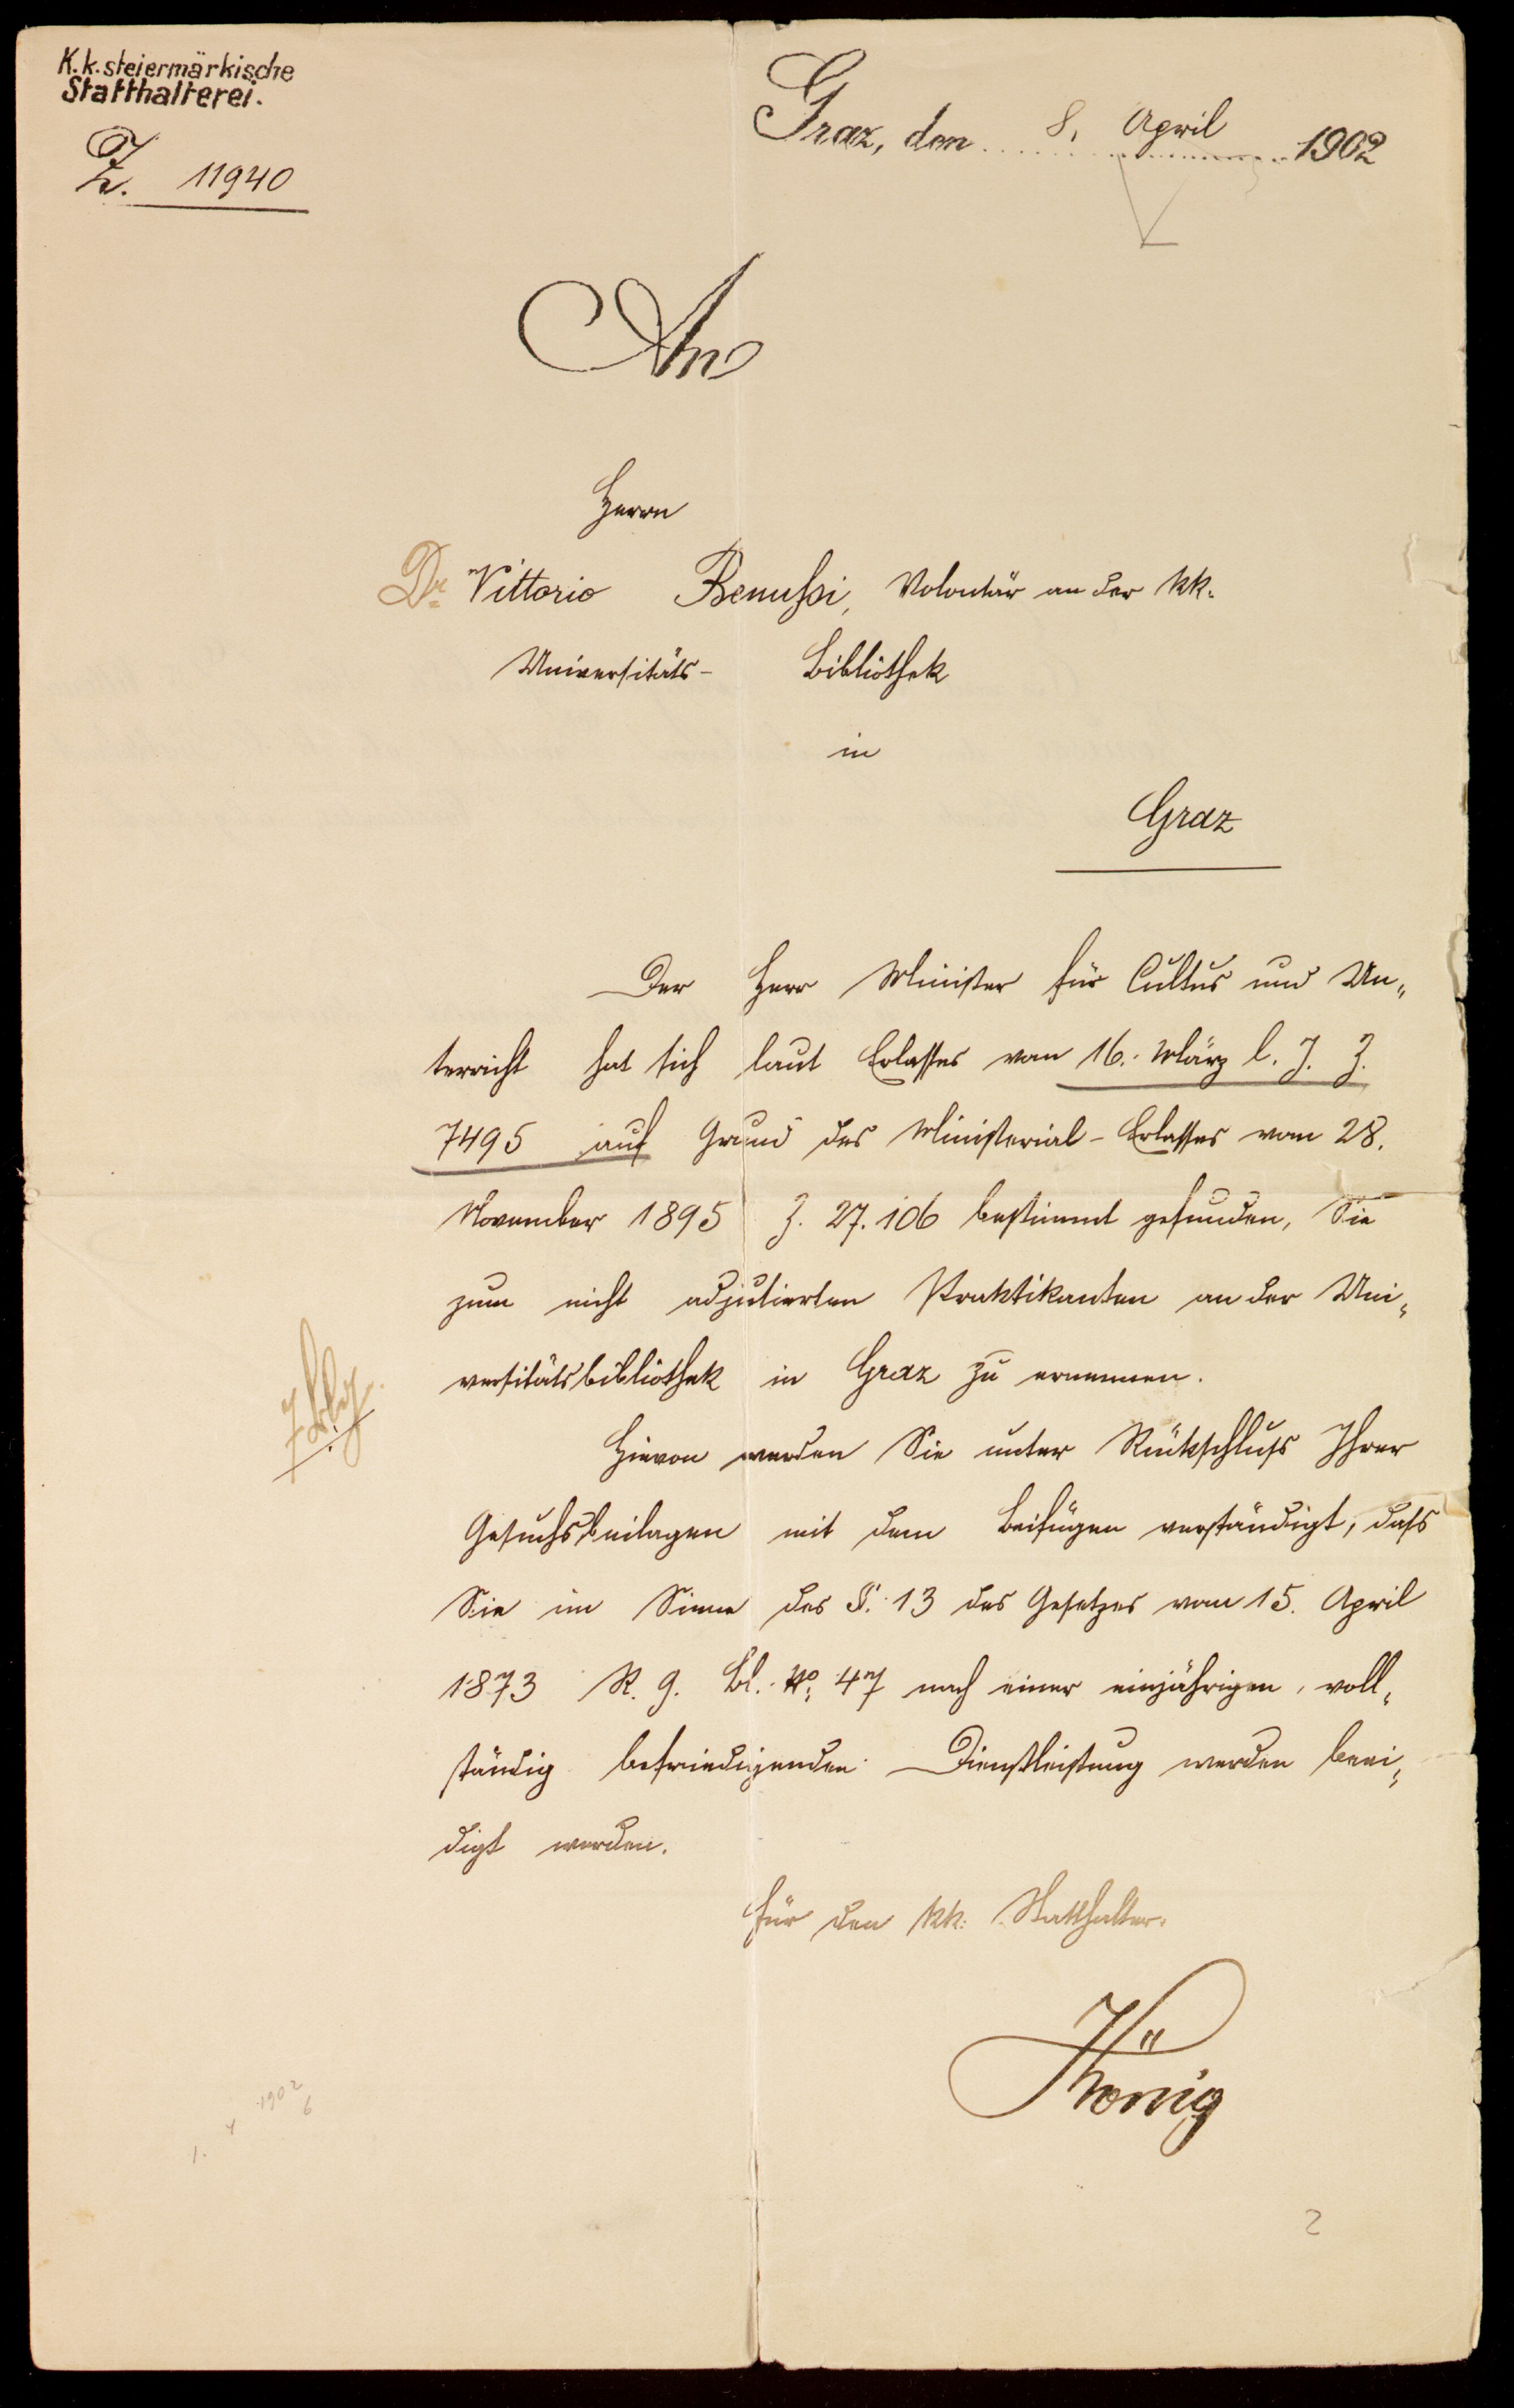 K.k. steiermärkische
Statthalterei.
Z. 11940
Graz, den 8. April 1902
An
Herrn
Dr Vittorio Benussi, Volontär an der kk.
Universitäts- Bibliothek
in
Graz
Der Herr Minister für Cultus und Un„
terricht hat sich laut Erlasses vom 16. März l. J. Z.
7495 auf Grund des Ministerial-Erlasses vom 28.
November 1895 Z. 27.106 bestimmt gefunden, Sie
zum nicht adjutierten Praktikanten an der Uni„
versitätsbibliothek in Graz zu ernennen.
Hievon werden Sie unter Rückschluss Ihrer
Gesuchsbeilagen mit dem Beifügen verständigt, dass
Sie im Sinne des §. 13 des Gesetzes vom 15. April
1873 R. G. Bl. No. 47 nach einer einjährigen, voll„
ständig befriedigenden Dienstleistung werden beei„
digt werden.
Für den kk. Statthalter.
König
1902
2